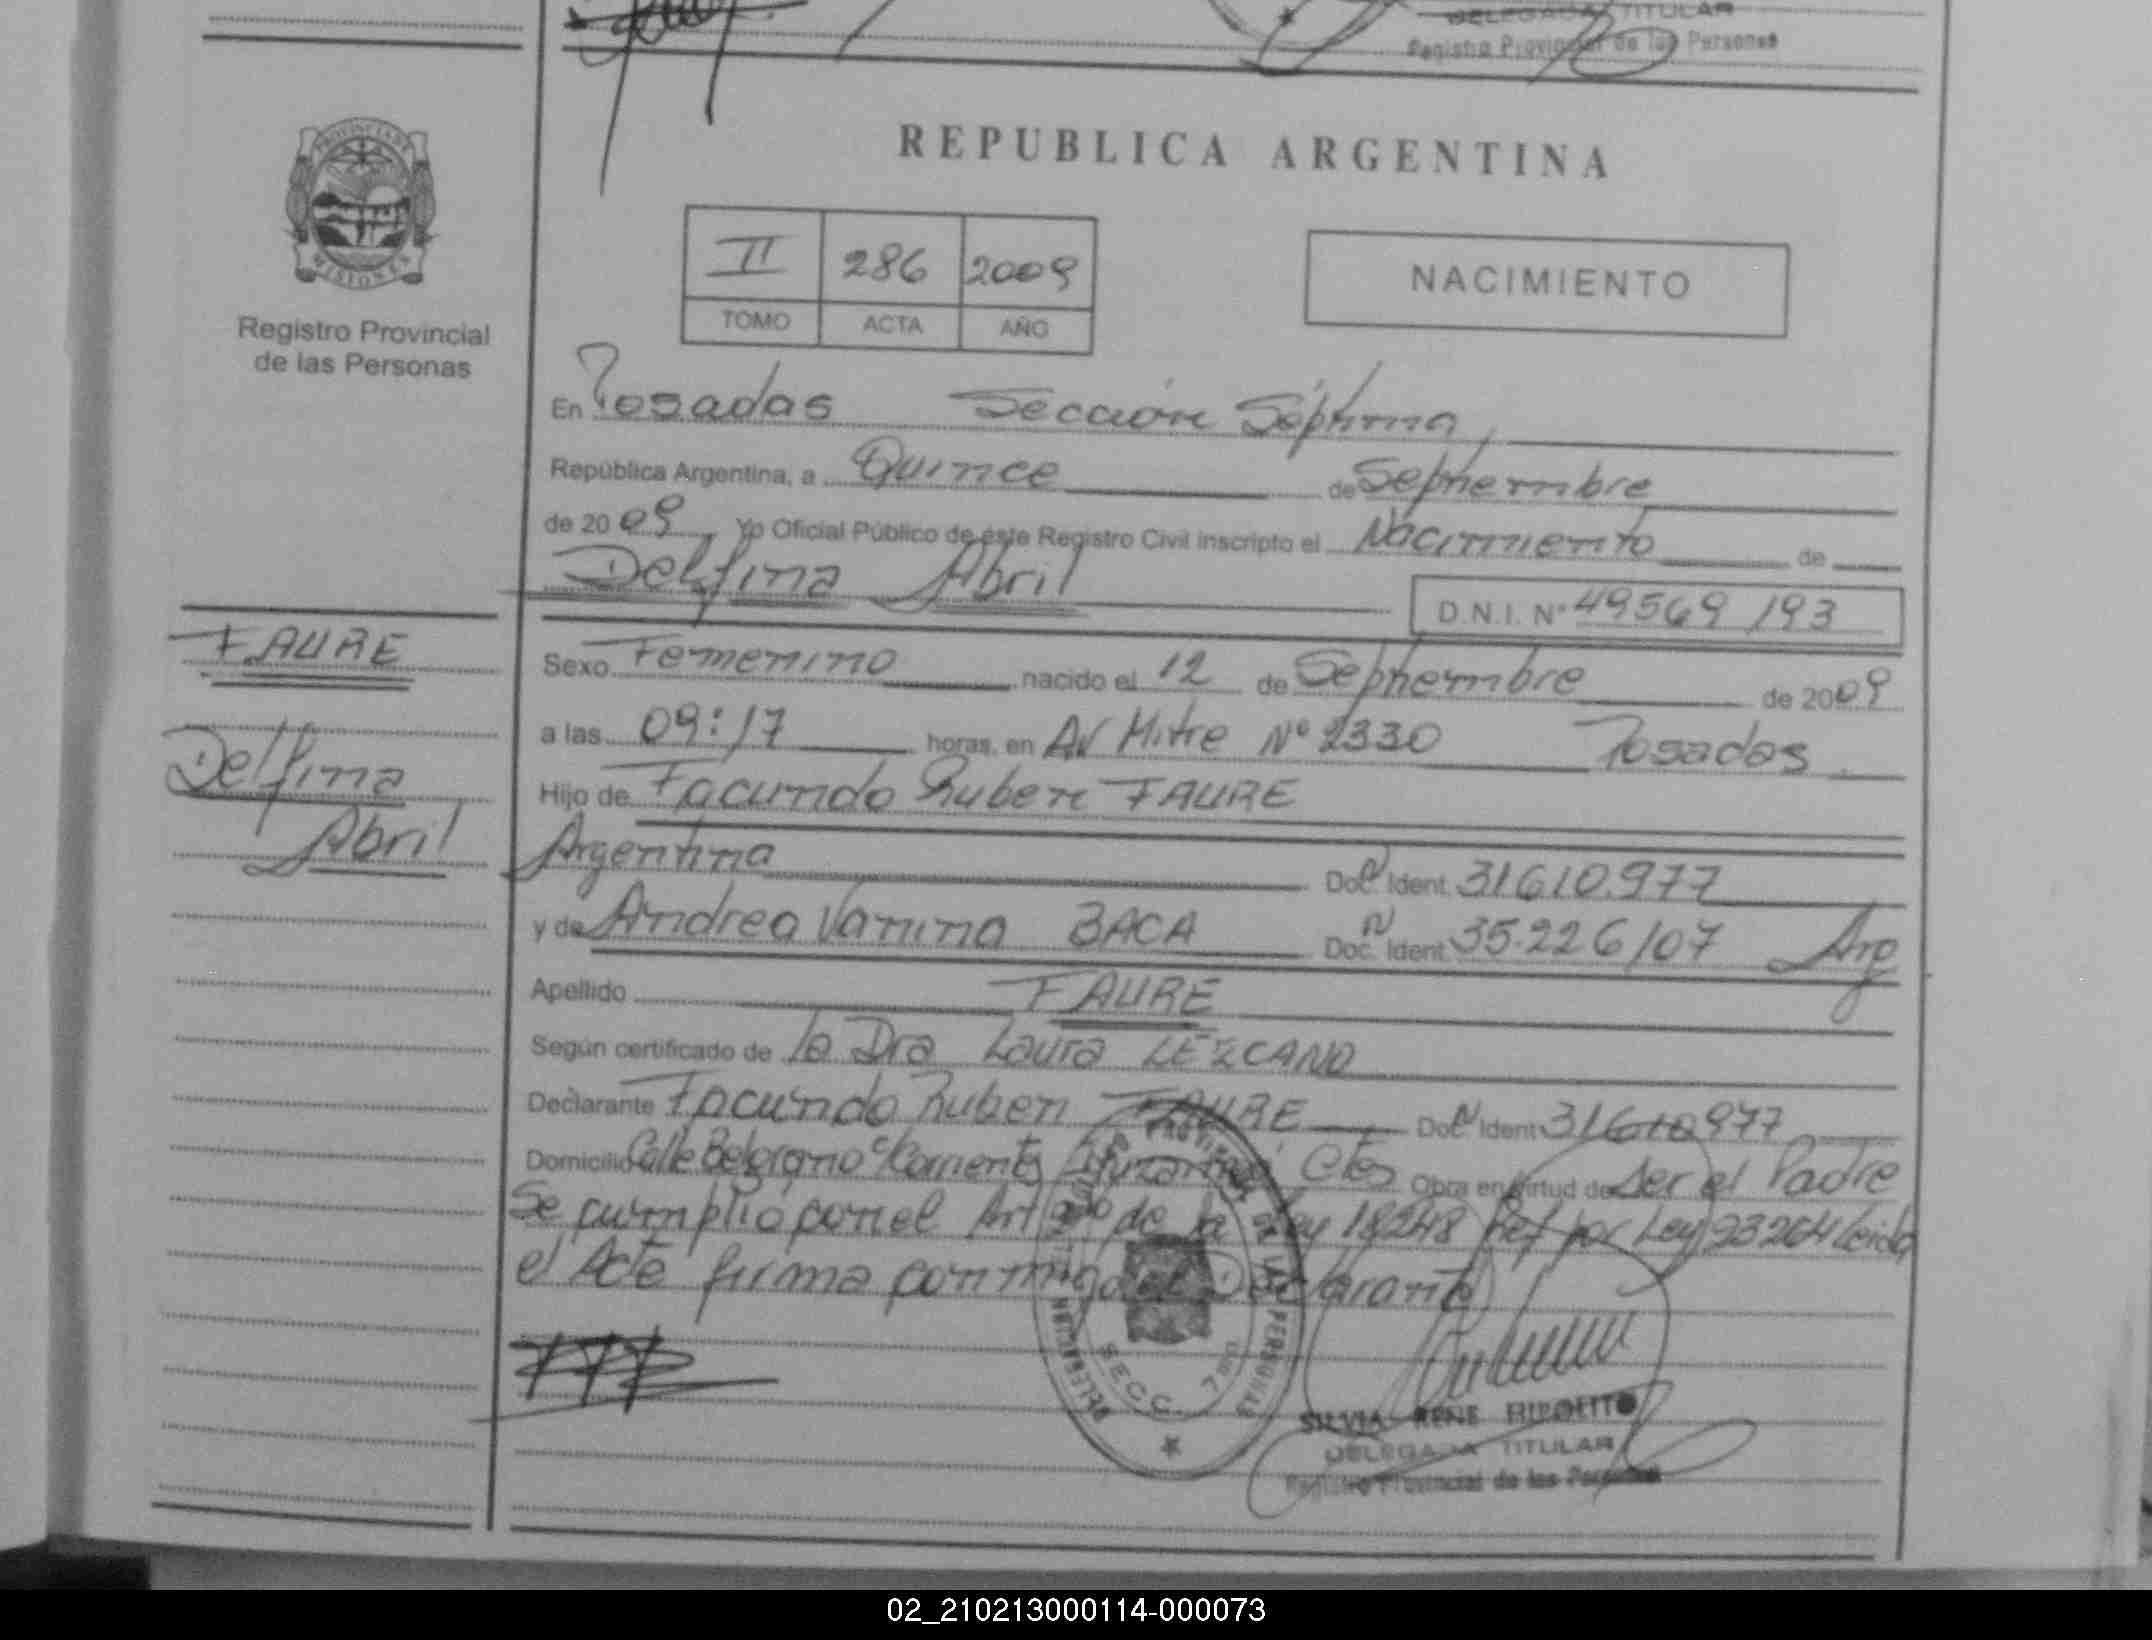 DELEGADA TITULAR
Registro Provincial de las Personas
PROVINCIA DE
MISIONES
Registro Provincial
de las Personas
REPUBLICA ARGENTINA
II 286 2009
TOMO ACTA AÑO
NACIMIENTO
En Posadas Sección Séptima,
República Argentina, a Quince de Septiembre
de 2009 Yo Oficial Público de éste Registro Civil inscripto el Nacimiento de
Delfina Abril
D.N.I. Nº 49569193
FAURE
Delfina
Abril
Sexo Femenino nacido el 12 de Septiembre de 2009
a las 09:17 horas, en Av Mitre Nº 2330 Posadas
Hijo de Facundo Ruben FAURE
Argentina Doc. Ident. 31610.977
y de Andrea Vanina BACA Doc. Ident. 35.226107 Arg
Apellido FAURE
Según certificado de la Dra Laura LEZCANO
Declarante Facundo Ruben FAURE Doc. Ident 31610977
Domicilio Calle Belgrano c/Corrientes Ctes Obra en virtud de Ser el Padre
Se cumplió con el Art de la Ley 18248 Ref por Ley 23264 Leida
el Acta firma conmigo el Declarante
DELEGACION
REGISTRO PROVINCIAL DE LAS PERSONAS
SECC. 7ma
SILVIA RENE HIPOLITO
DELEGADA TITULAR
Registro Provincial de las Personas
02_210213000114-000073